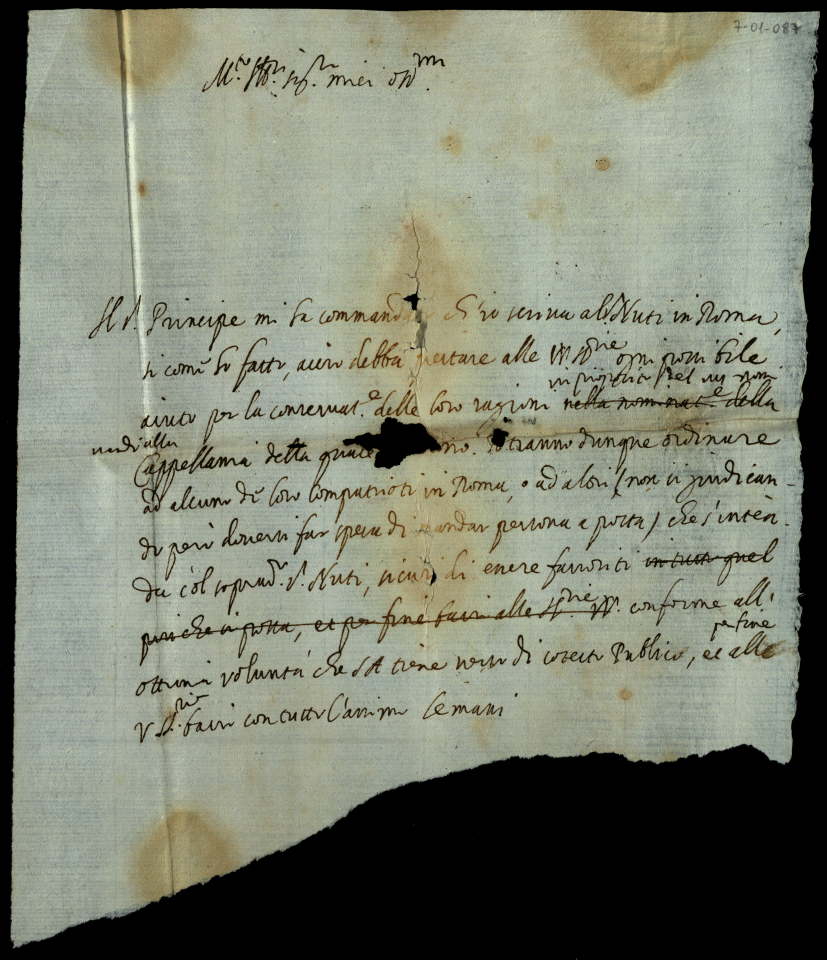 7-01-087
M.to Ill.ri sig.ri miei oss.mi
Il S. Principe mi ha commandato ch'io scriva al S. Nuti in Roma,
si come ho fatto, acciò debba prestare alle VV. SS.rie ogni possibile
in proposito del
aiuto per la conservat.e delle loro ragioni nella nominat.e della
Cappellania detta quale Potranno dunque ordinare
ad alcuno de loro compatrioti in Roma, o ad altri (non si giudican-
do però doversi far spesa di mandar persona a posta) che s'inten-
da col soprad.o S. Nuti, sicuri di essere favoriti in tutto quel
più che si possa, et per fine bacio alle SS.rie VV. conforme all'
per fine
ottima voluntà che S.A. tiene verso di cotesto Publico, et alle
V. S.rie bacio con tutto l'animo le mani